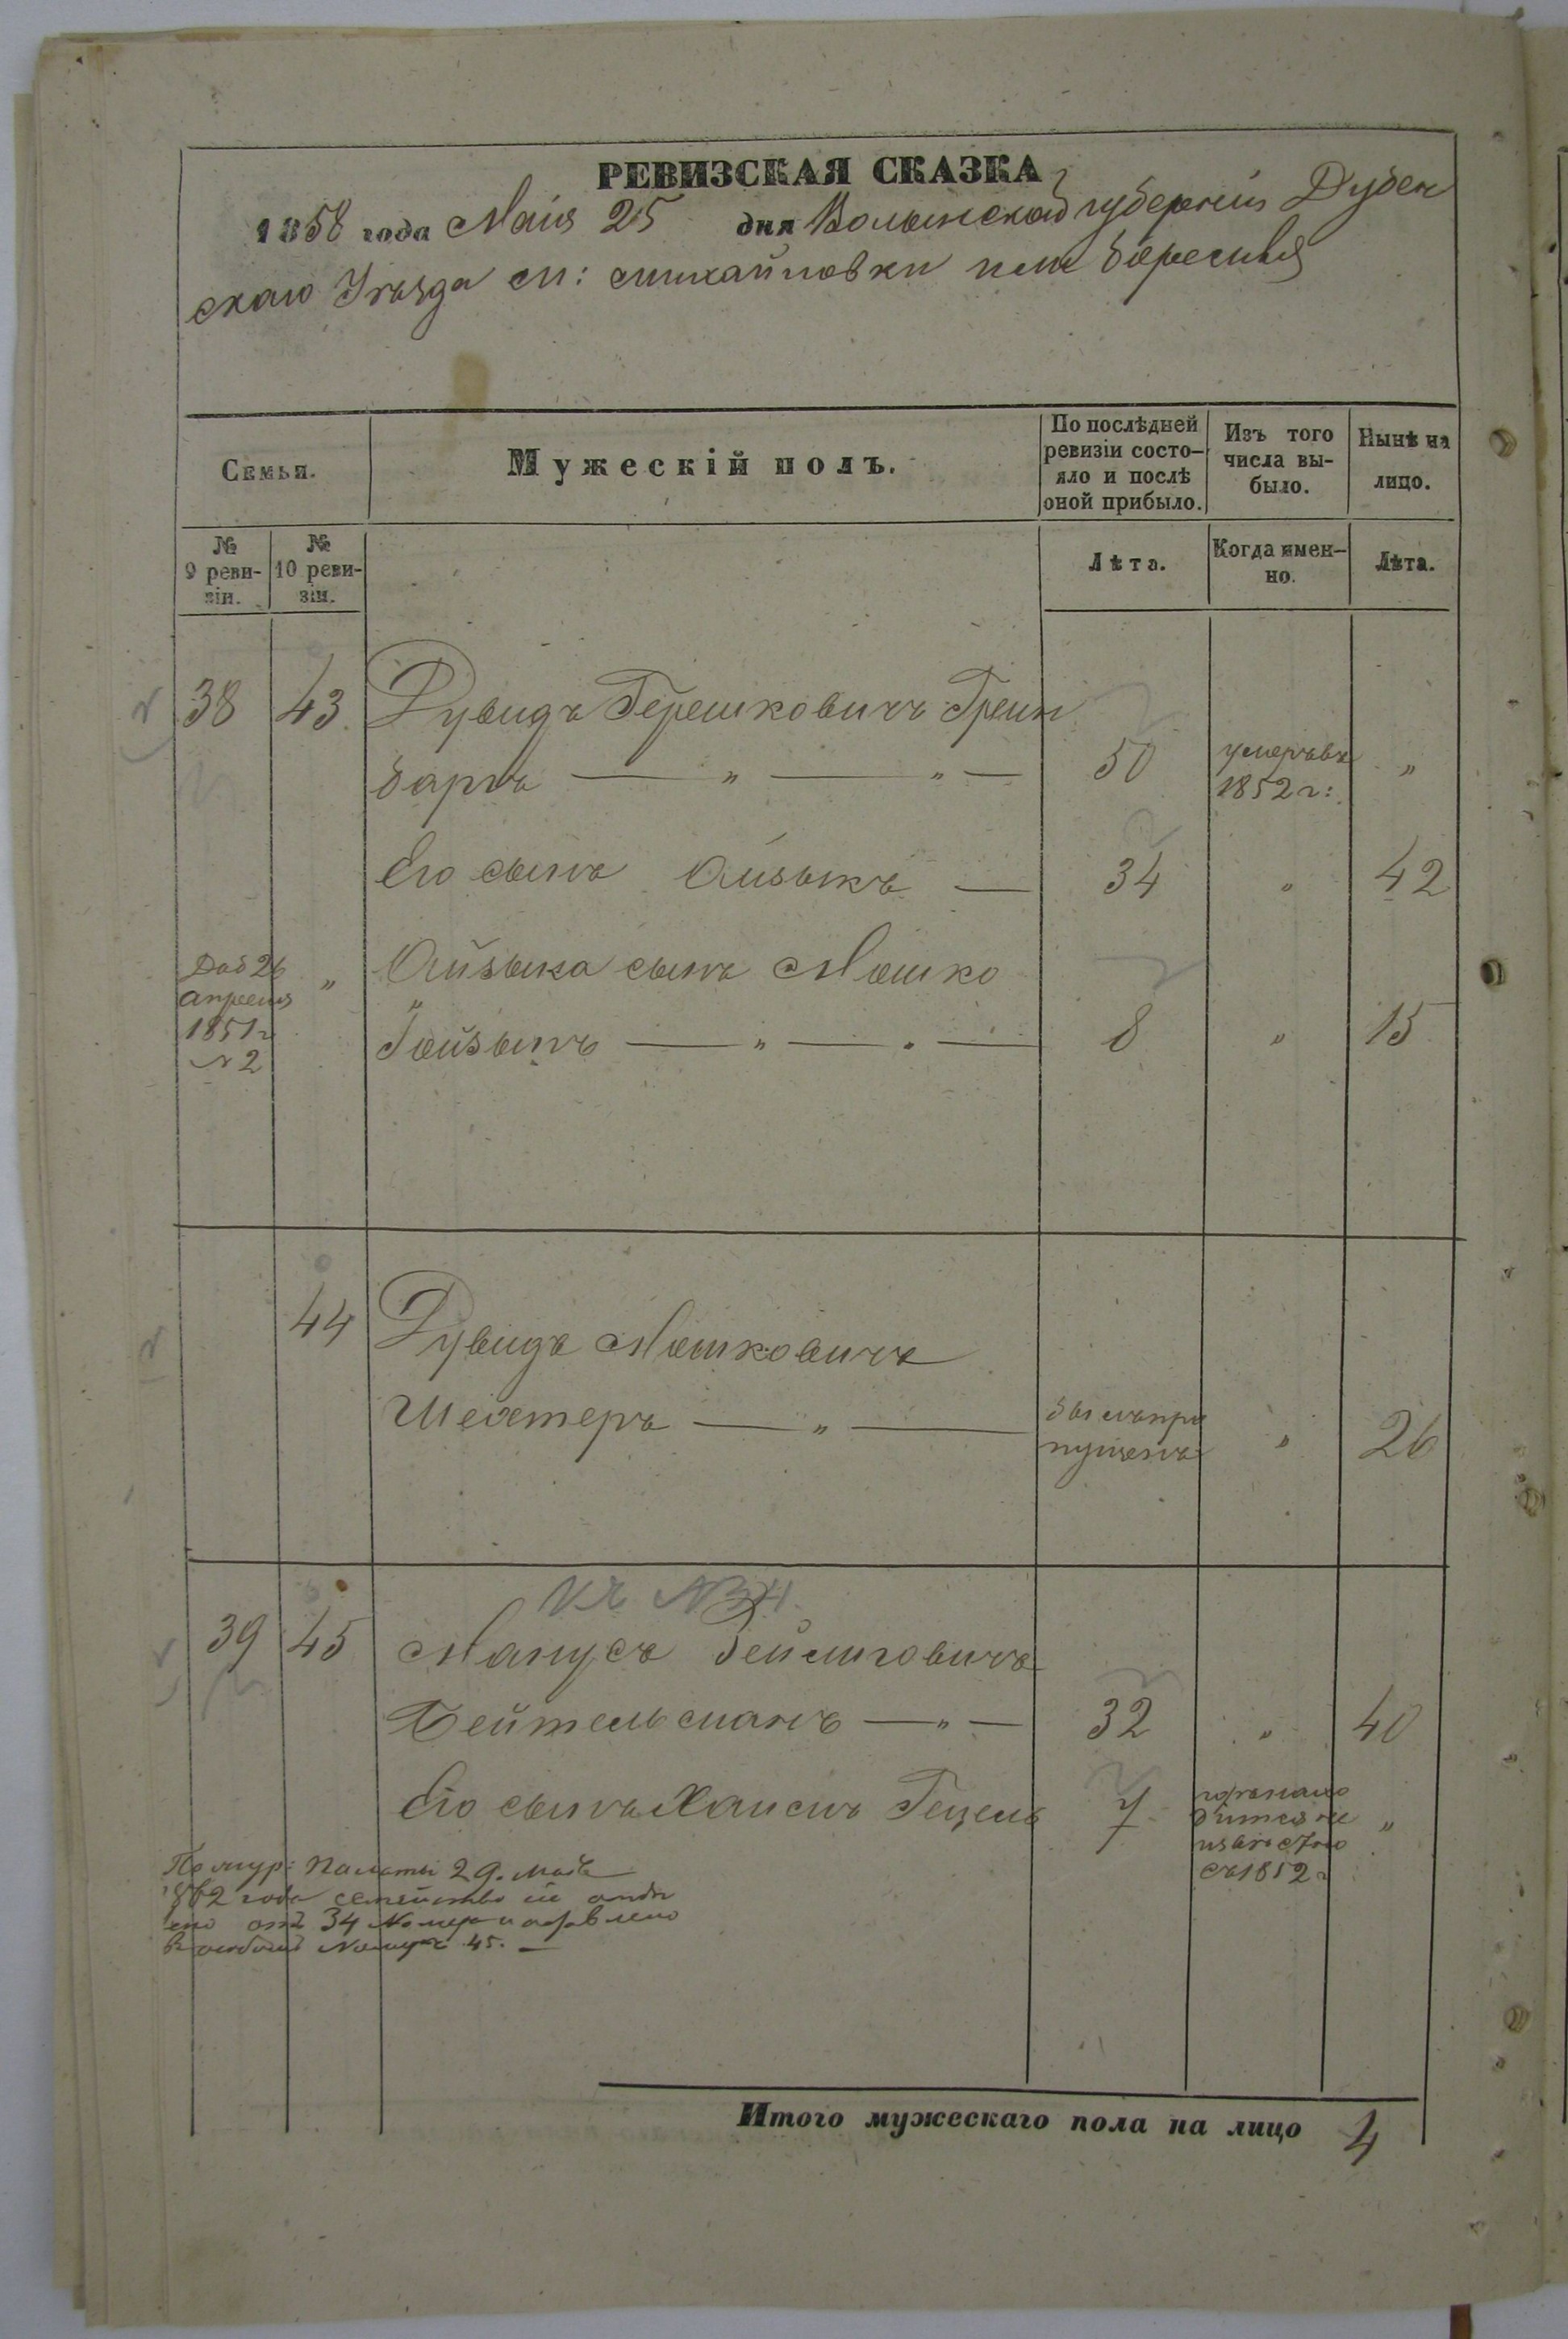 РЕВИЗСКАЯ СКАЗКА
1858 года Маія 25 дня Волынской губерніи Дубен
скаго Уѣзда м: Михайловки или Берестья
Семьи.
Мужескій полъ.
По послѣдней ревизіи состо-
яло и послѣ
оной прибыло.
Изъ того
числа вы-
было.
Нынѣ на
лицо.
№
9 реви-
зіи.
№
10 реви-
зіи.
Лѣта.
Когда имен-
но.
Лѣта.
38 43 Дувидъ Гершковичъ Грин
баргъ — „ — „ — 50 умеръ въ 1852 г: „
Его сынъ Айзыкъ — 34 „ 42
Доб 26
апреля
1851 г
№ 2
„ Айзыка сынъ Мошко
Гойзынъ — „ — „ — 8 „ 15
44 Дувидъ Мошковичъ
Шехтеръ — „ — былъ про
пущенъ „ 26
39 45 Манусъ Зейлиговичъ
Бейтельманъ — „ — 32 „ 40
Его сынъ Хаимъ Гецель 7
не
извѣстно
съ 1852 г „
По жур: Палаты 29. Мая
1862 года семейство сіе отдѣ
лено отъ 34 Номера и
въ особый Номеръ 45. —
Итого мужескаго пола на лицо 4